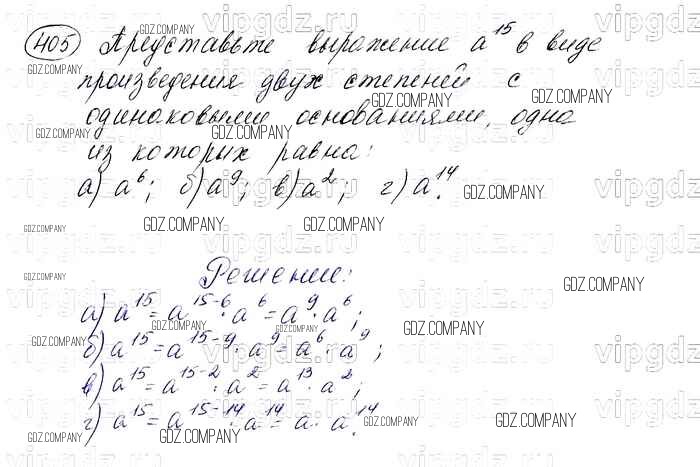 405 Представьте выражение a¹⁵ в виде
произведения двух степеней с
одинаковыми основаниями, одна
из которых равна:
а) a⁶; б) a⁹; в) a²; г) a¹⁴.
Решение:
а) a¹⁵ = a¹⁵⁻⁶ · a⁶ = a⁹ · a⁶;
б) a¹⁵ = a¹⁵⁻⁹ · a⁹ = a⁶ · a⁹;
в) a¹⁵ = a¹⁵⁻² · a² = a¹³ · a²;
г) a¹⁵ = a¹⁵⁻¹⁴ · a¹⁴ = a · a¹⁴.
GDZ.COMPANY
vipgdz.ru